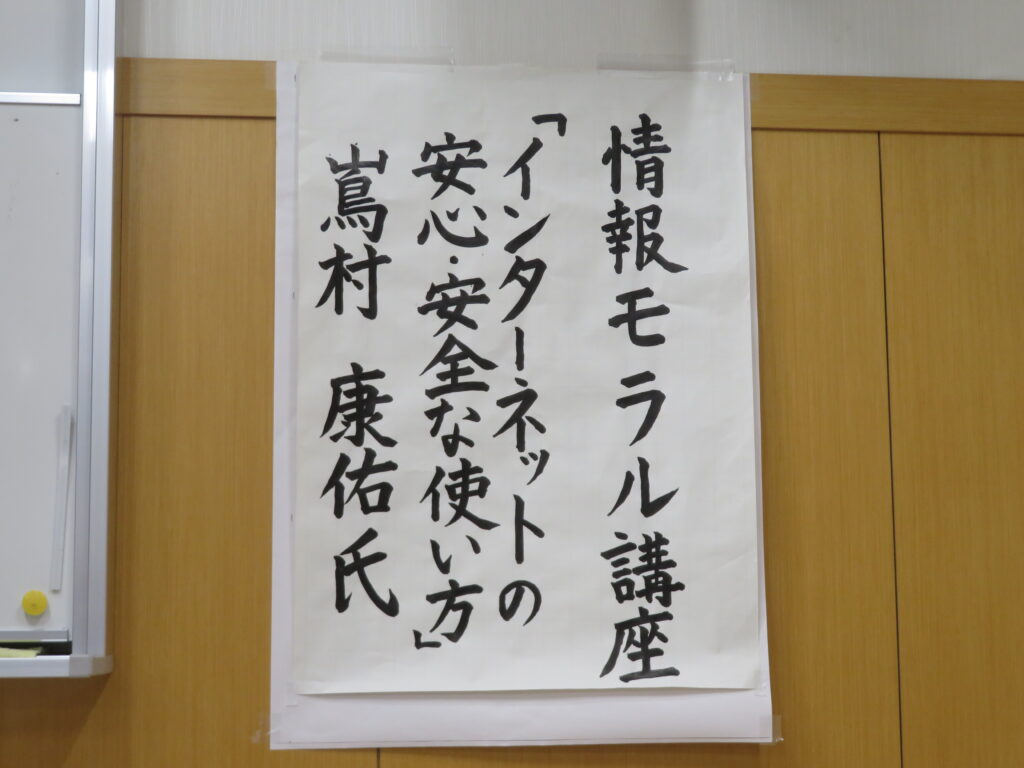 情報モラル講座
「インターネットの
安心・安全な使い方」
嶌村 康佑氏